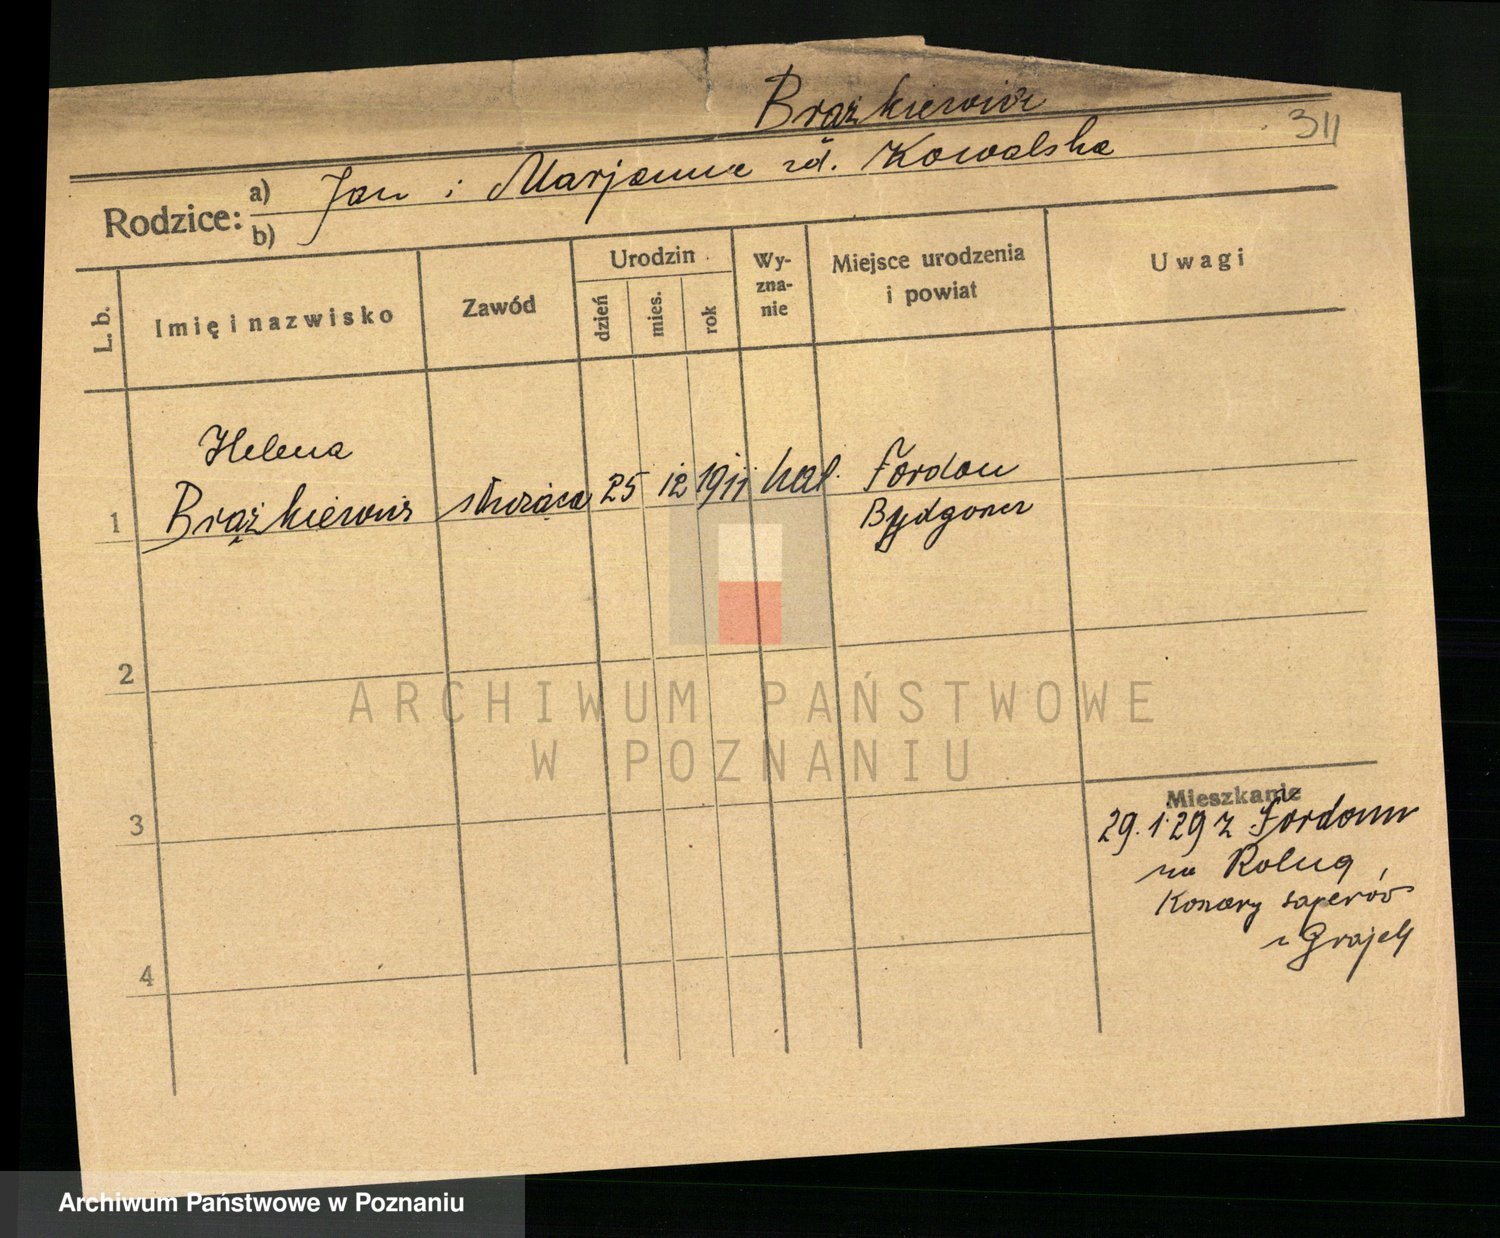 Brążkiewicz
311
Rodzice:
a) Jan i Marjanna zd. Kowalska
b)
L. b.
Imię i nazwisko
Zawód
Urodzin
dzień
mies.
rok
Wy-
zna-
nie
Miejsce urodzenia
i powiat
Uwagi
Helena
1 Brążkiewicz służąca 25 12 1911 kat. Fordon
Bydgoszcz
2
ARCHIWUM PAŃSTWOWE
W POZNANIU
3
Mieszkanie
29.1.29 z Fordonu
na
saperów
4
Archiwum Państwowe w Poznaniu